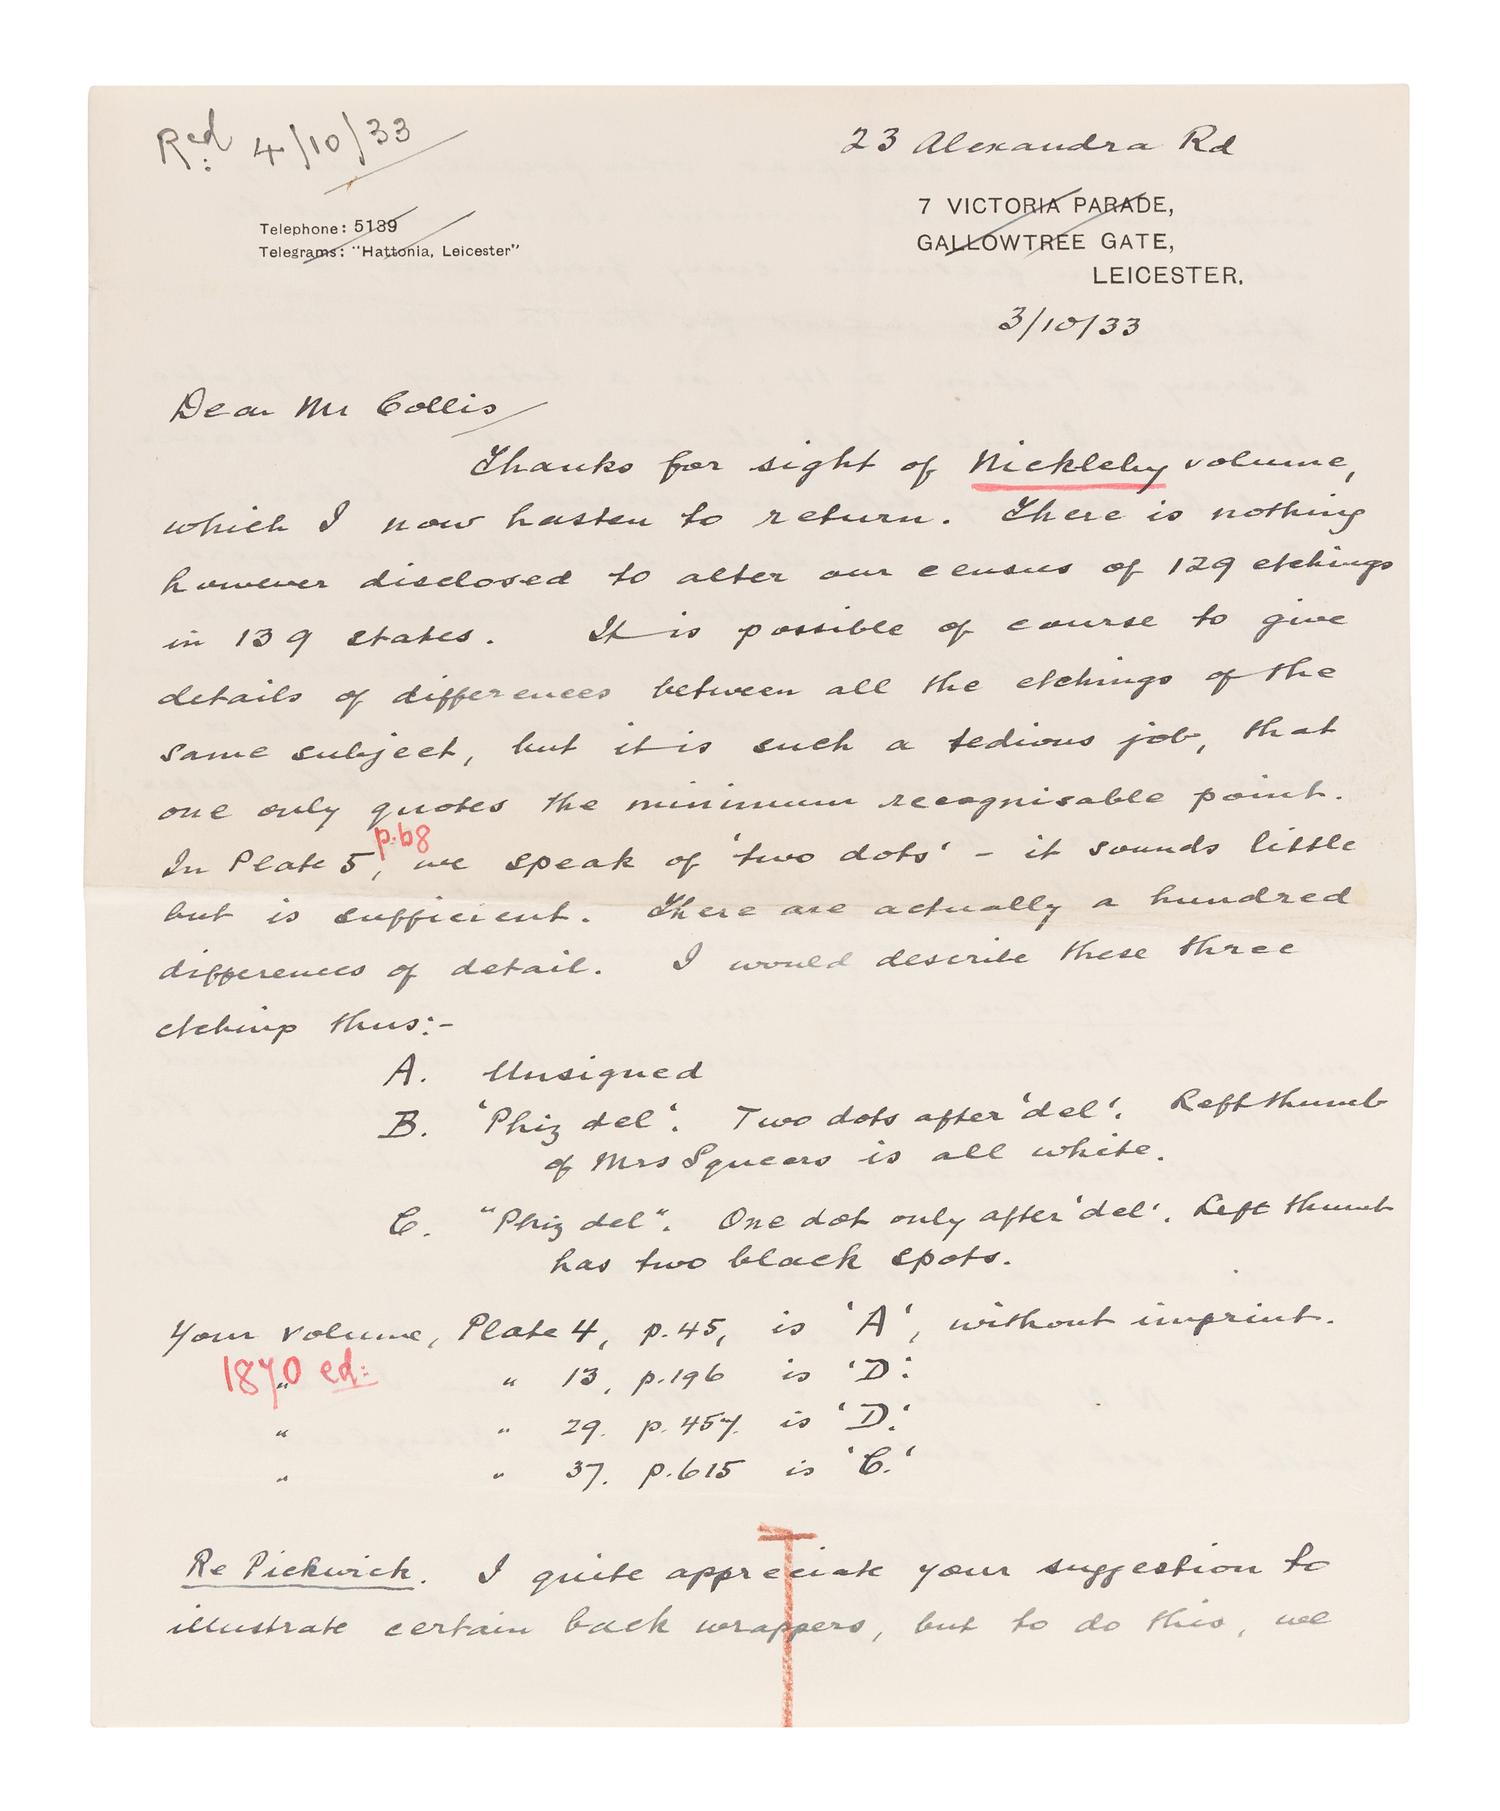 Recd 4/10/33
23 Alexandra Rd
Telephone: 5139
Telegrams: "Hattonia, Leicester"
7 VICTORIA PARADE,
GALLOWTREE GATE,
LEICESTER.
3/10/33
Dear Mr Collis
Thanks for sight of Nickleby volume,
which I now hasten to return. There is nothing
however disclosed to alter our census of 129 etchings
in 139 states. It is possible of course to give
details of differences between all the etchings of the
same subject, but it is such a tedious job, that
one only quotes the minimum recognisable point.
p.68
In Plate 5, we speak of 'two dots' - it sounds little
but is sufficient. There are actually a hundred
differences of detail. I would describe these three
etchings thus:-
A. Unsigned
B. 'Phiz del'. Two dots after 'del'. Left thumb
of Mrs Squeers is all white.
C. "Phiz del". One dot only after 'del'. Left thumb
has two black spots.
Your volume, Plate 4, p.45, is 'A', without imprint.
1870 ed:
" " 13, p.196 is 'D'.
" " 29. p.457. is 'D.'
" " 37. p.615 is 'C.'
Re Pickwick. I quite appreciate your suggestion to
illustrate certain back wrappers, but to do this, we